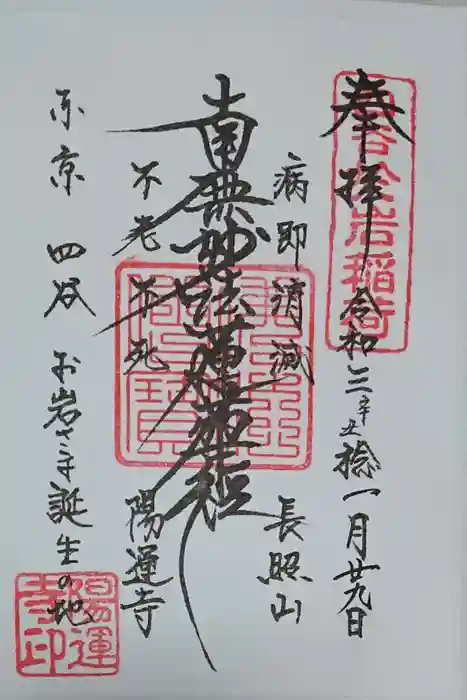 奉拝
令和三辛丑稔一月廿九日
病即消滅
長照山
南無妙法蓮華経
不老不死
陽運寺
東京 四谷 お岩さま誕生の地
於岩稲荷
陽運寺印